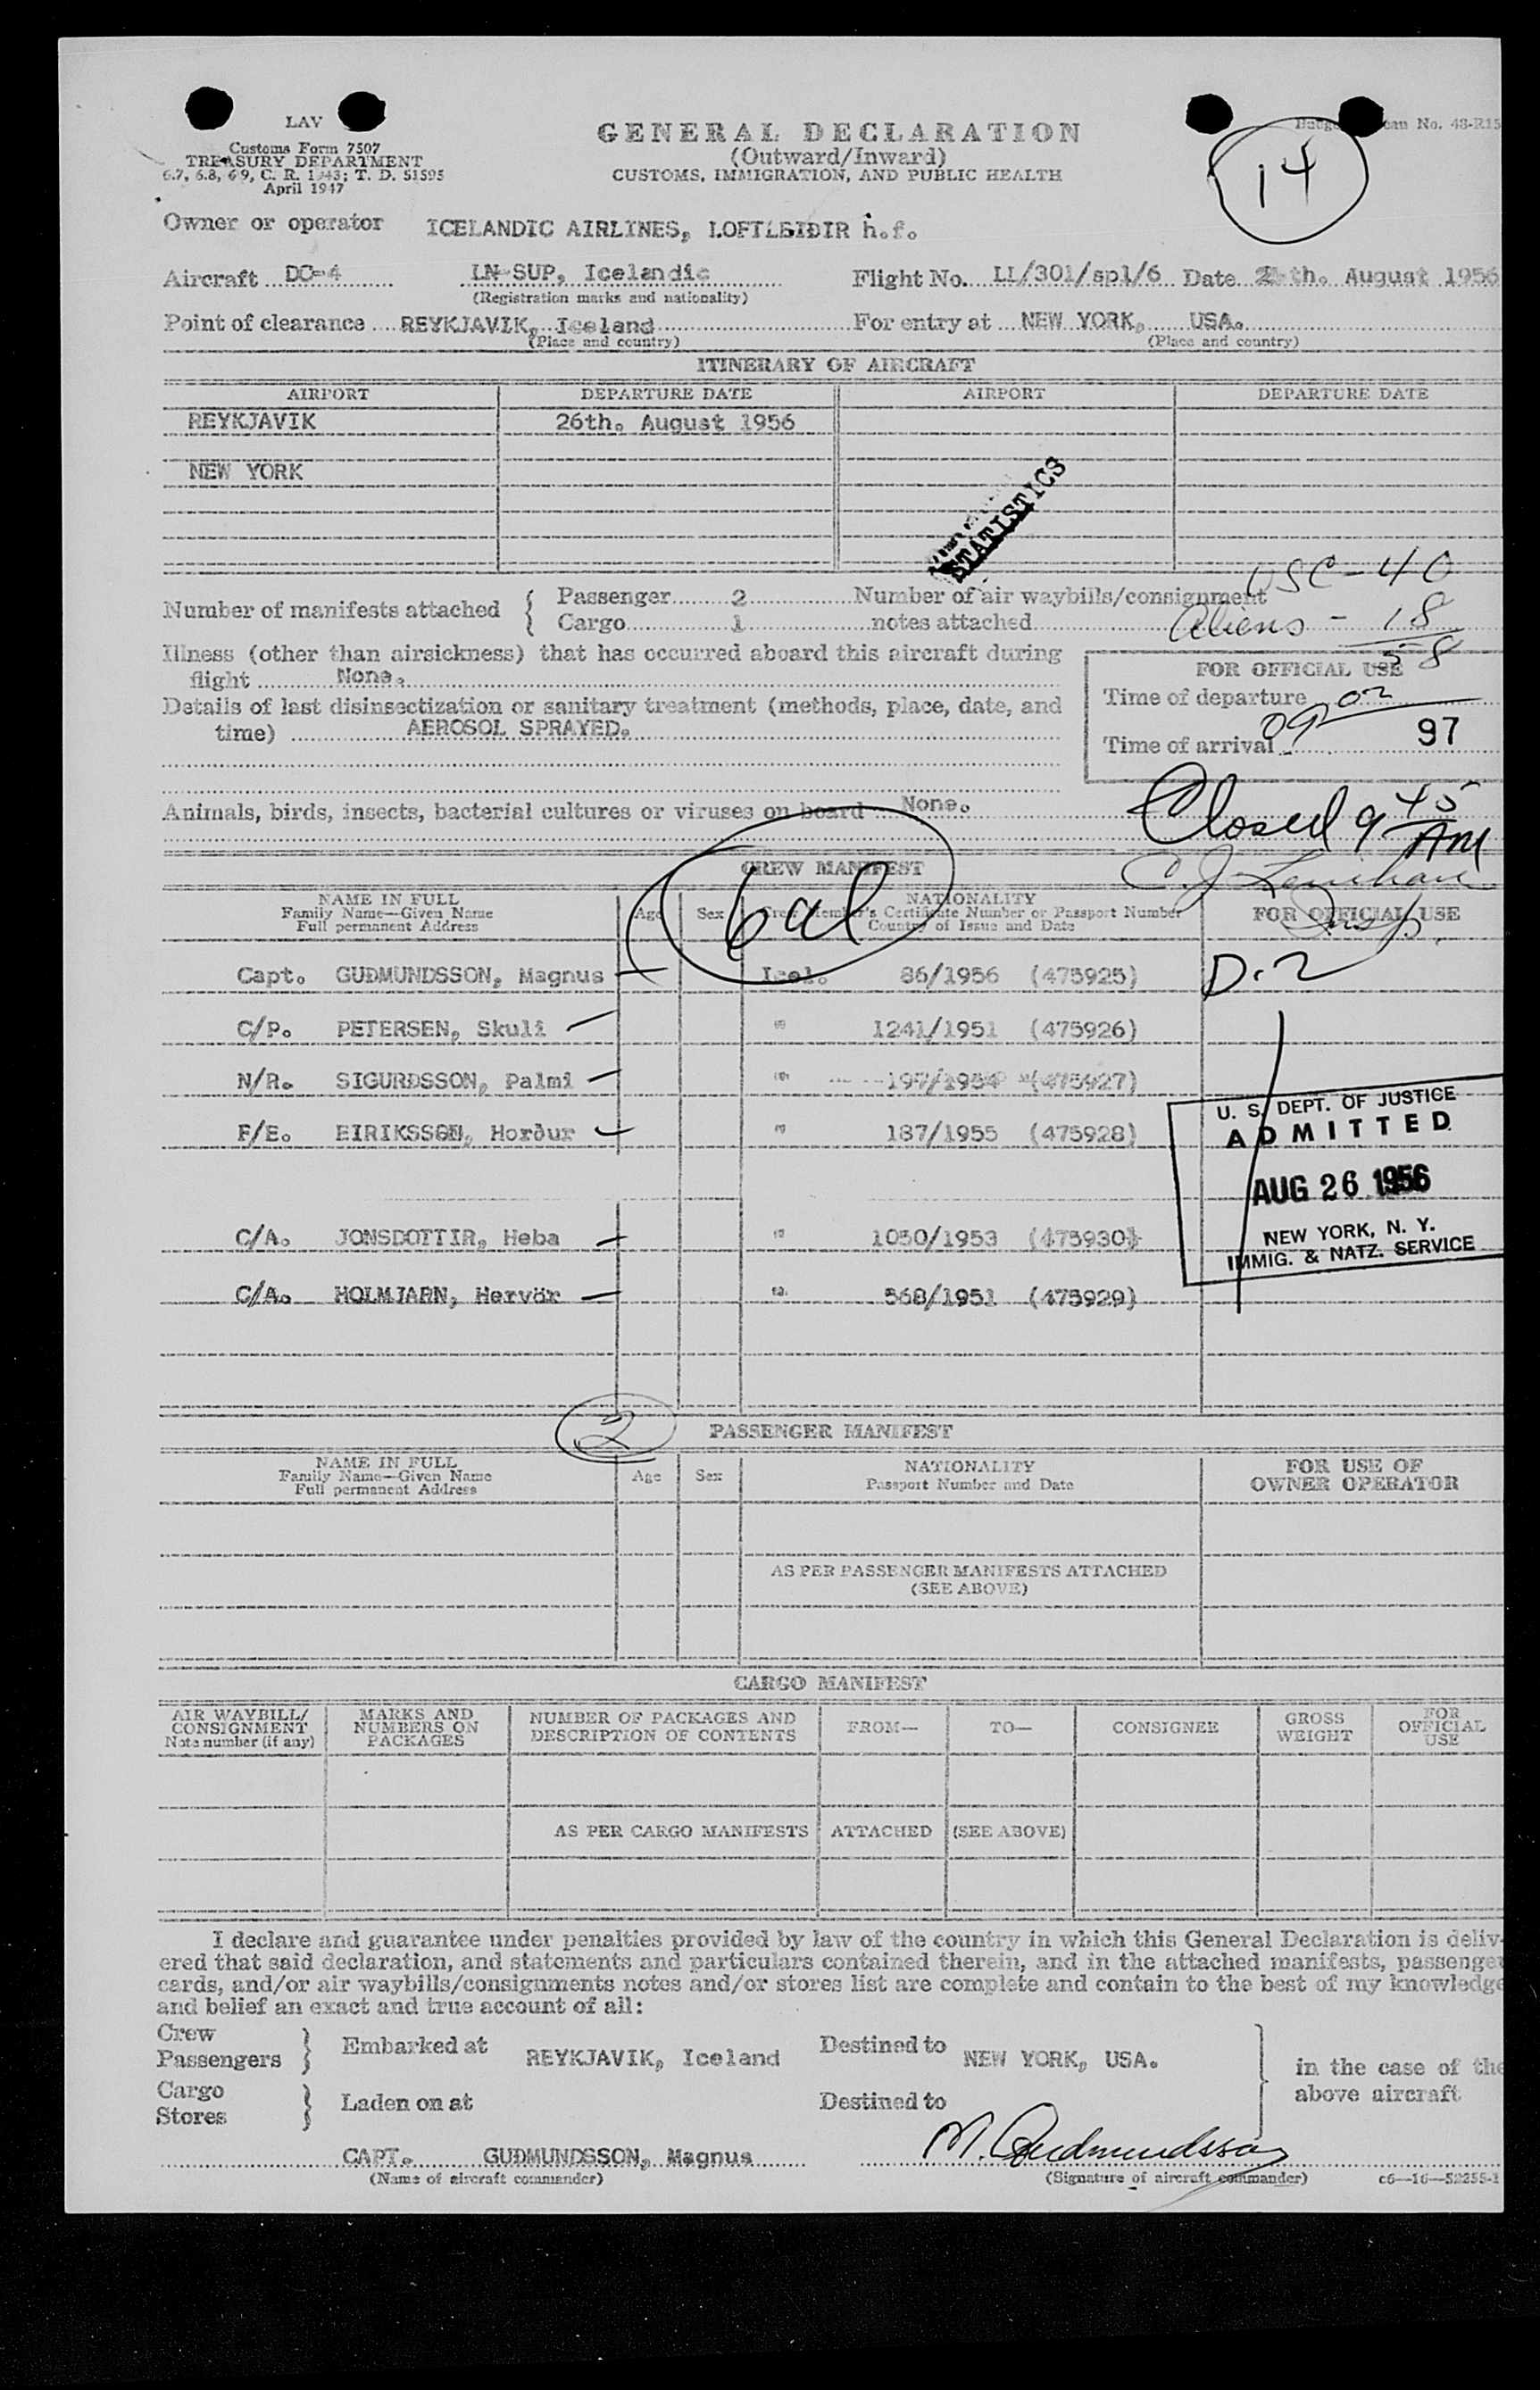 LAV
Customs Form 7507
TREASURY DEPARTMENT
6.7, 6.8, 6.9, C. R. 1943; T. D. 51595
April 1947
GENERAL DECLARATION
(Outward/Inward)
CUSTOMS, IMMIGRATION, AND PUBLIC HEALTH
No. 48-R15
14
Owner or operator ICELANDIC AIRLINES, LOFTLEIDIR h.f.
Aircraft DC-4 LN-SUP, Icelandic Flight No. LL/301/spl/6 Date th. August 1956
(Registration marks and nationality)
Point of clearance REYKJAVIK, Iceland For entry at NEW YORK, USA.
(Place and country) (Place and country)
ITINERARY OF AIRCRAFT
AIRPORT DEPARTURE DATE AIRPORT DEPARTURE DATE
REYKJAVIK 26th. August 1956
NEW YORK
STATISTICS
USC - 40
Number of manifests attached { Passenger 2 Number of air waybills/consignment
Cargo 1 notes attached
Aliens - 18
58
Illness (other than airsickness) that has occurred aboard this aircraft during
flight None.
Details of last disinsectization or sanitary treatment (methods, place, date, and
time) AEROSOL SPRAYED.
FOR OFFICIAL USE
Time of departure
Time of arrival 0902 97
Animals, birds, insects, bacterial cultures or viruses on board None.
Closed 9 45 AM
C. J. Lenihan
Insp.
CREW MANIFEST
6 al
NAME IN FULL
Family Name—Given Name
Full permanent Address
Age Sex
NATIONALITY
Crew Member's Certificate Number or Passport Number
Country of Issue and Date
FOR OFFICIAL USE
Capt. GUÐMUNDSSON, Magnus Icel. 86/1956 (475925) D.2
C/P. PETERSEN, Skuli " 1241/1951 (475926)
N/R. SIGURDSSON, Palmi " 197/1954 (475927)
F/E. EIRIKSSON, Horður " 187/1955 (475928)
C/A. JONSDOTTIR, Heba " 1050/1953 (475930)
C/A. HOLMJARN, Hervör " 568/1951 (475929)
U. S. DEPT. OF JUSTICE
ADMITTED
AUG 26 1956
NEW YORK, N. Y.
IMMIG. & NATZ. SERVICE
2
PASSENGER MANIFEST
NAME IN FULL
Family Name—Given Name
Full permanent Address
Age Sex
NATIONALITY
Passport Number and Date
FOR USE OF
OWNER OPERATOR
AS PER PASSENGER MANIFESTS ATTACHED
(SEE ABOVE)
CARGO MANIFEST
AIR WAYBILL/
CONSIGNMENT
Note number (if any)
MARKS AND
NUMBERS ON
PACKAGES
NUMBER OF PACKAGES AND
DESCRIPTION OF CONTENTS
FROM— TO— CONSIGNEE
GROSS
WEIGHT
FOR
OFFICIAL
USE
AS PER CARGO MANIFESTS ATTACHED (SEE ABOVE)
I declare and guarantee under penalties provided by law of the country in which this General Declaration is deliv-
ered that said declaration, and statements and particulars contained therein, and in the attached manifests, passenger
cards, and/or air waybills/consignments notes and/or stores list are complete and contain to the best of my knowledge
and belief an exact and true account of all:
Crew
Passengers } Embarked at REYKJAVIK, Iceland Destined to NEW YORK, USA.
Cargo
Stores } Laden on at Destined to
in the case of the
above aircraft
CAPT. GUÐMUNDSSON, Magnus M. Gudmundsson
(Name of aircraft commander) (Signature of aircraft commander) c6—16—52255-1